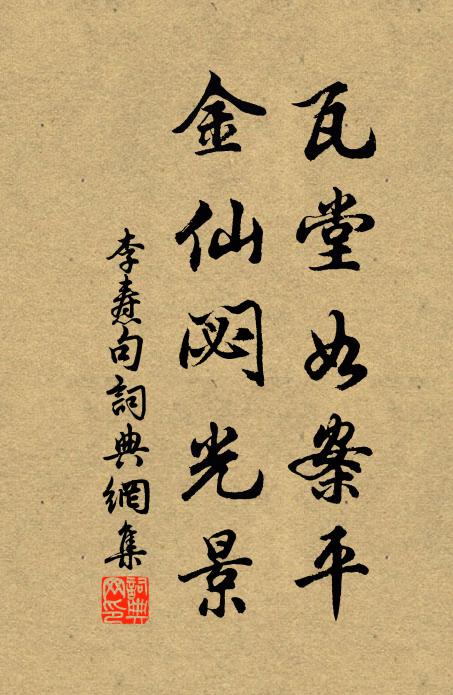 瓦堂如案平
金仙閟光景
李燾句詞典網集
詞典網印